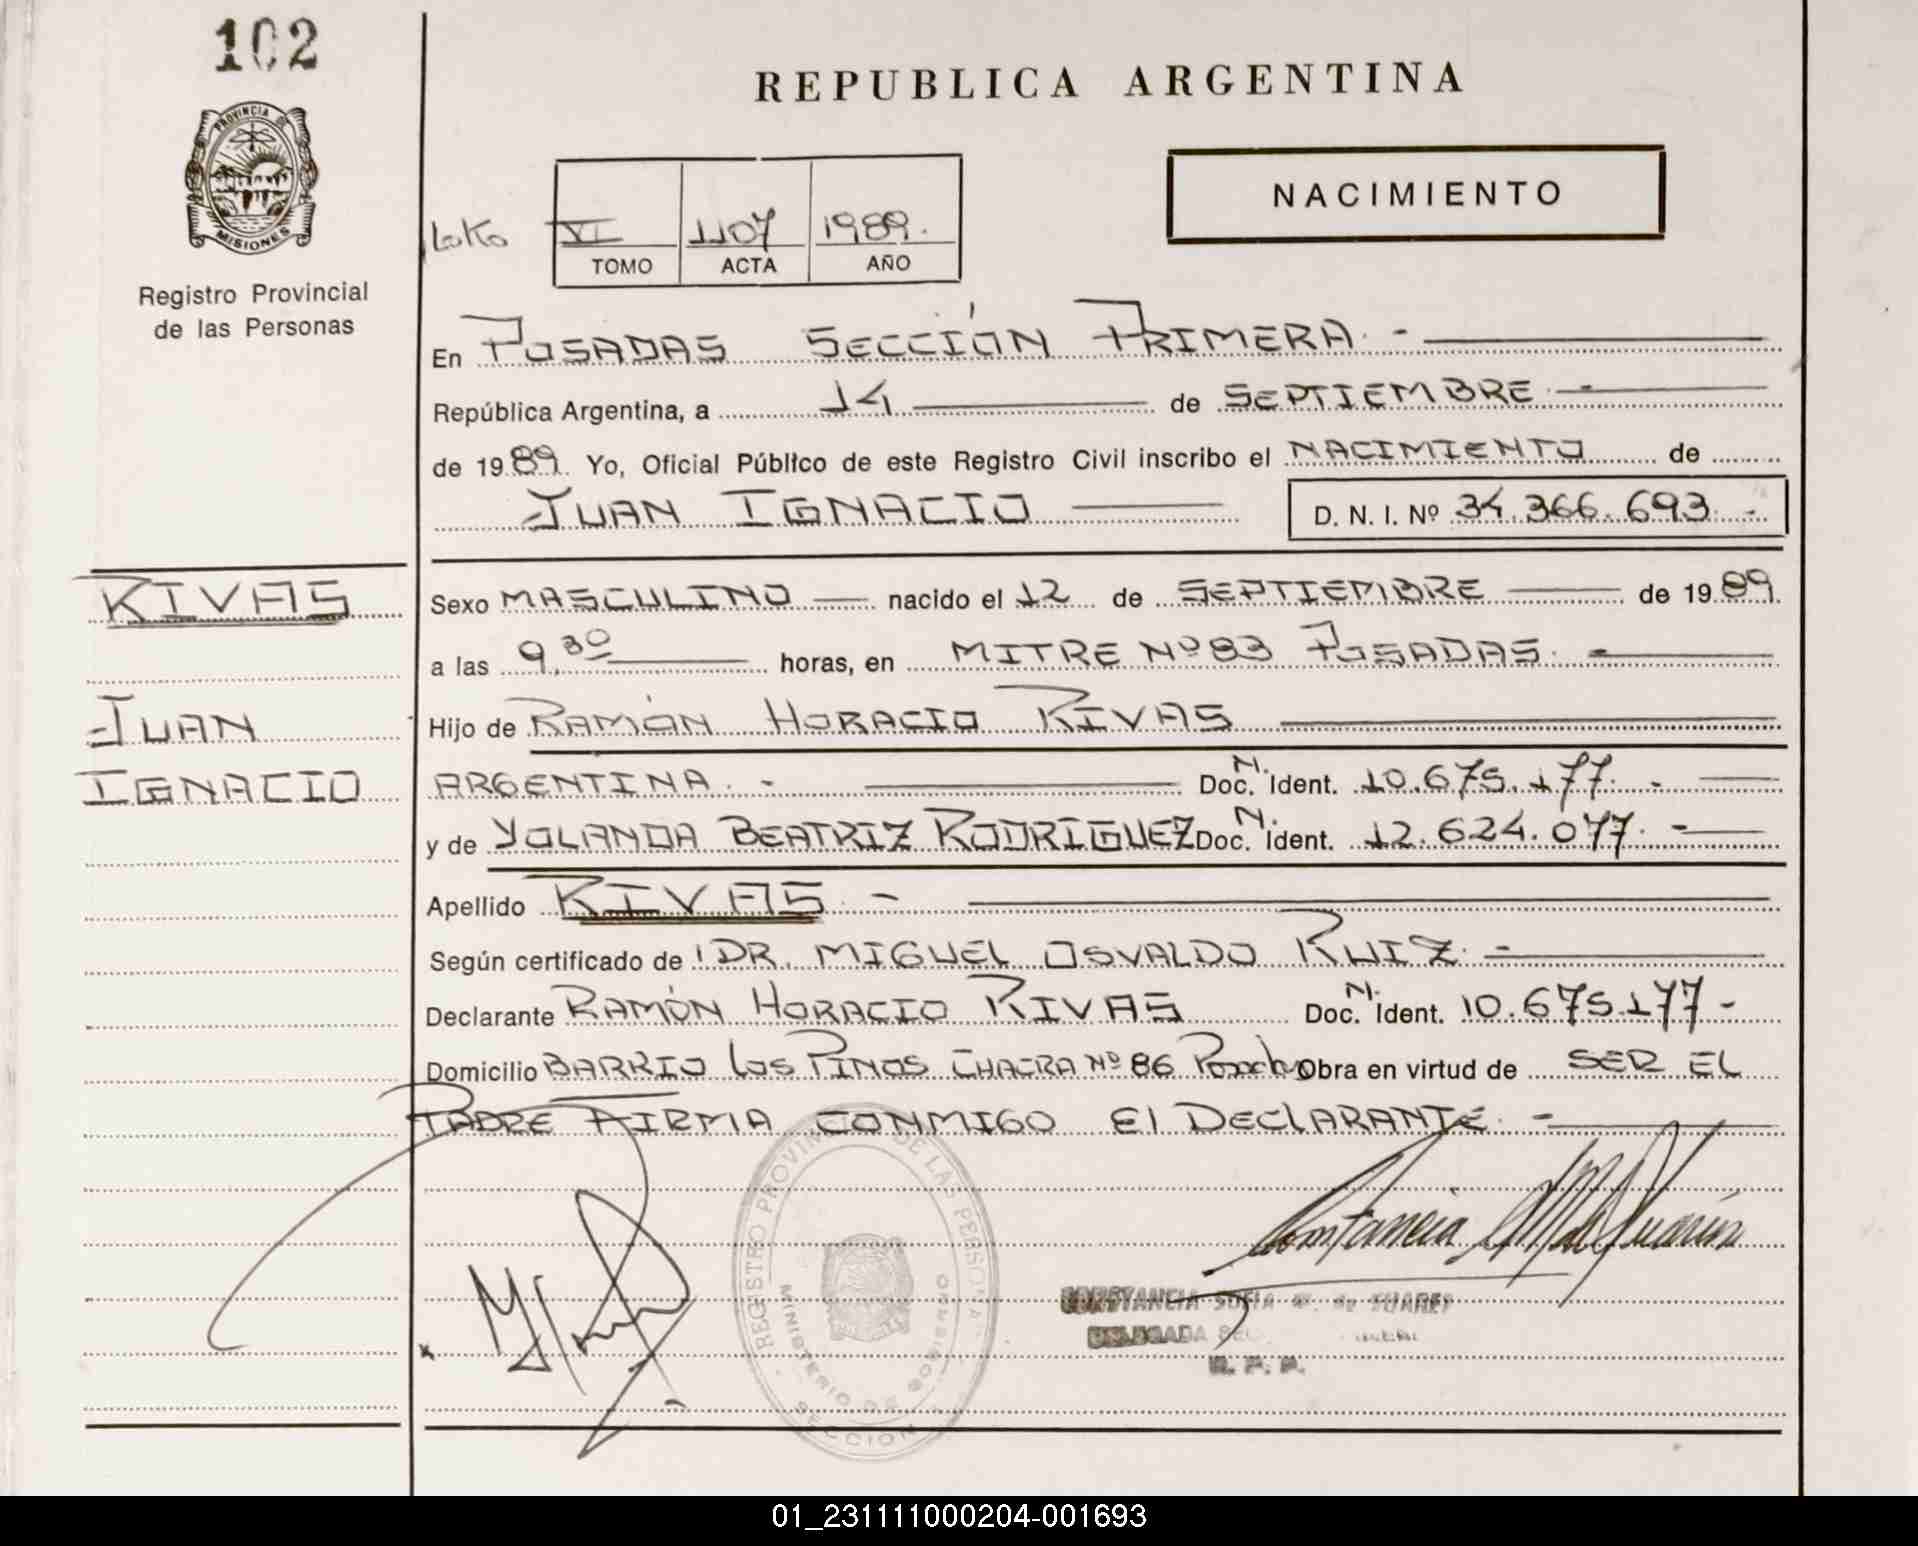 102
PROVINCIA DE
MISIONES
Registro Provincial
de las Personas
REPUBLICA ARGENTINA
NACIMIENTO
VI 1107 1989.
TOMO ACTA AÑO
En POSADAS SECCIÓN PRIMERA. -
República Argentina, a 14 de SEPTIEMBRE. -
de 1989. Yo, Oficial Público de este Registro Civil inscribo el NACIMIENTO de
JUAN IGNACIO D. N. I. Nº 34.366.693. -
RIVAS
JUAN
IGNACIO
Sexo MASCULINO nacido el 12 de SEPTIEMBRE de 1989.
a las 9,30 horas, en MITRE Nº 83 POSADAS. -
Hijo de RAMÓN HORACIO RIVAS
ARGENTINA. - Doc. N. Ident. 10.675.177. -
y de YOLANDA BEATRIZ RODRIGUEZ Doc. N. Ident. 12.624.077. -
Apellido RIVAS -
Según certificado de DR. MIGUEL OSVALDO RUIZ. -
Declarante RAMÓN HORACIO RIVAS Doc. N. Ident. 10.675.177 -
Domicilio BARRIO LOS PINOS CHACRA Nº 86 Posadas Obra en virtud de SER EL
PADRE FIRMA CONMIGO El DEClARANTE. -
REGISTRO PROVINCIAL DE LAS PERSONAS
MINISTERIO DE GOBIERNO
SECCION
Constancia M de Suarez
CONSTANCIA SOFIA M. de SUAREZ
DELEGADA
R. P. P.
01_231111000204-001693